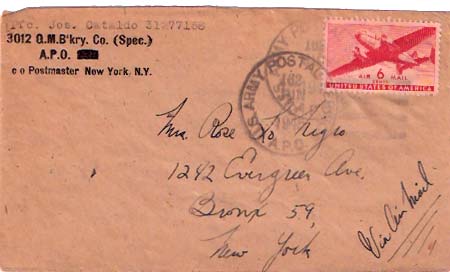 Pfc. Jos. Cataldo 31277156
3012 Q.M.B'kry. Co. (Spec.)
A.P.O.
c o Postmaster New York, N.Y.
U.S. ARMY POSTAL
A.P.O.
AIR 6 MAIL
CENTS
UNITED STATES OF AMERICA
Mrs. Rose Lo Nigro
1242 Evergreen Ave.
Bronx 59,
New York
Via Air Mail